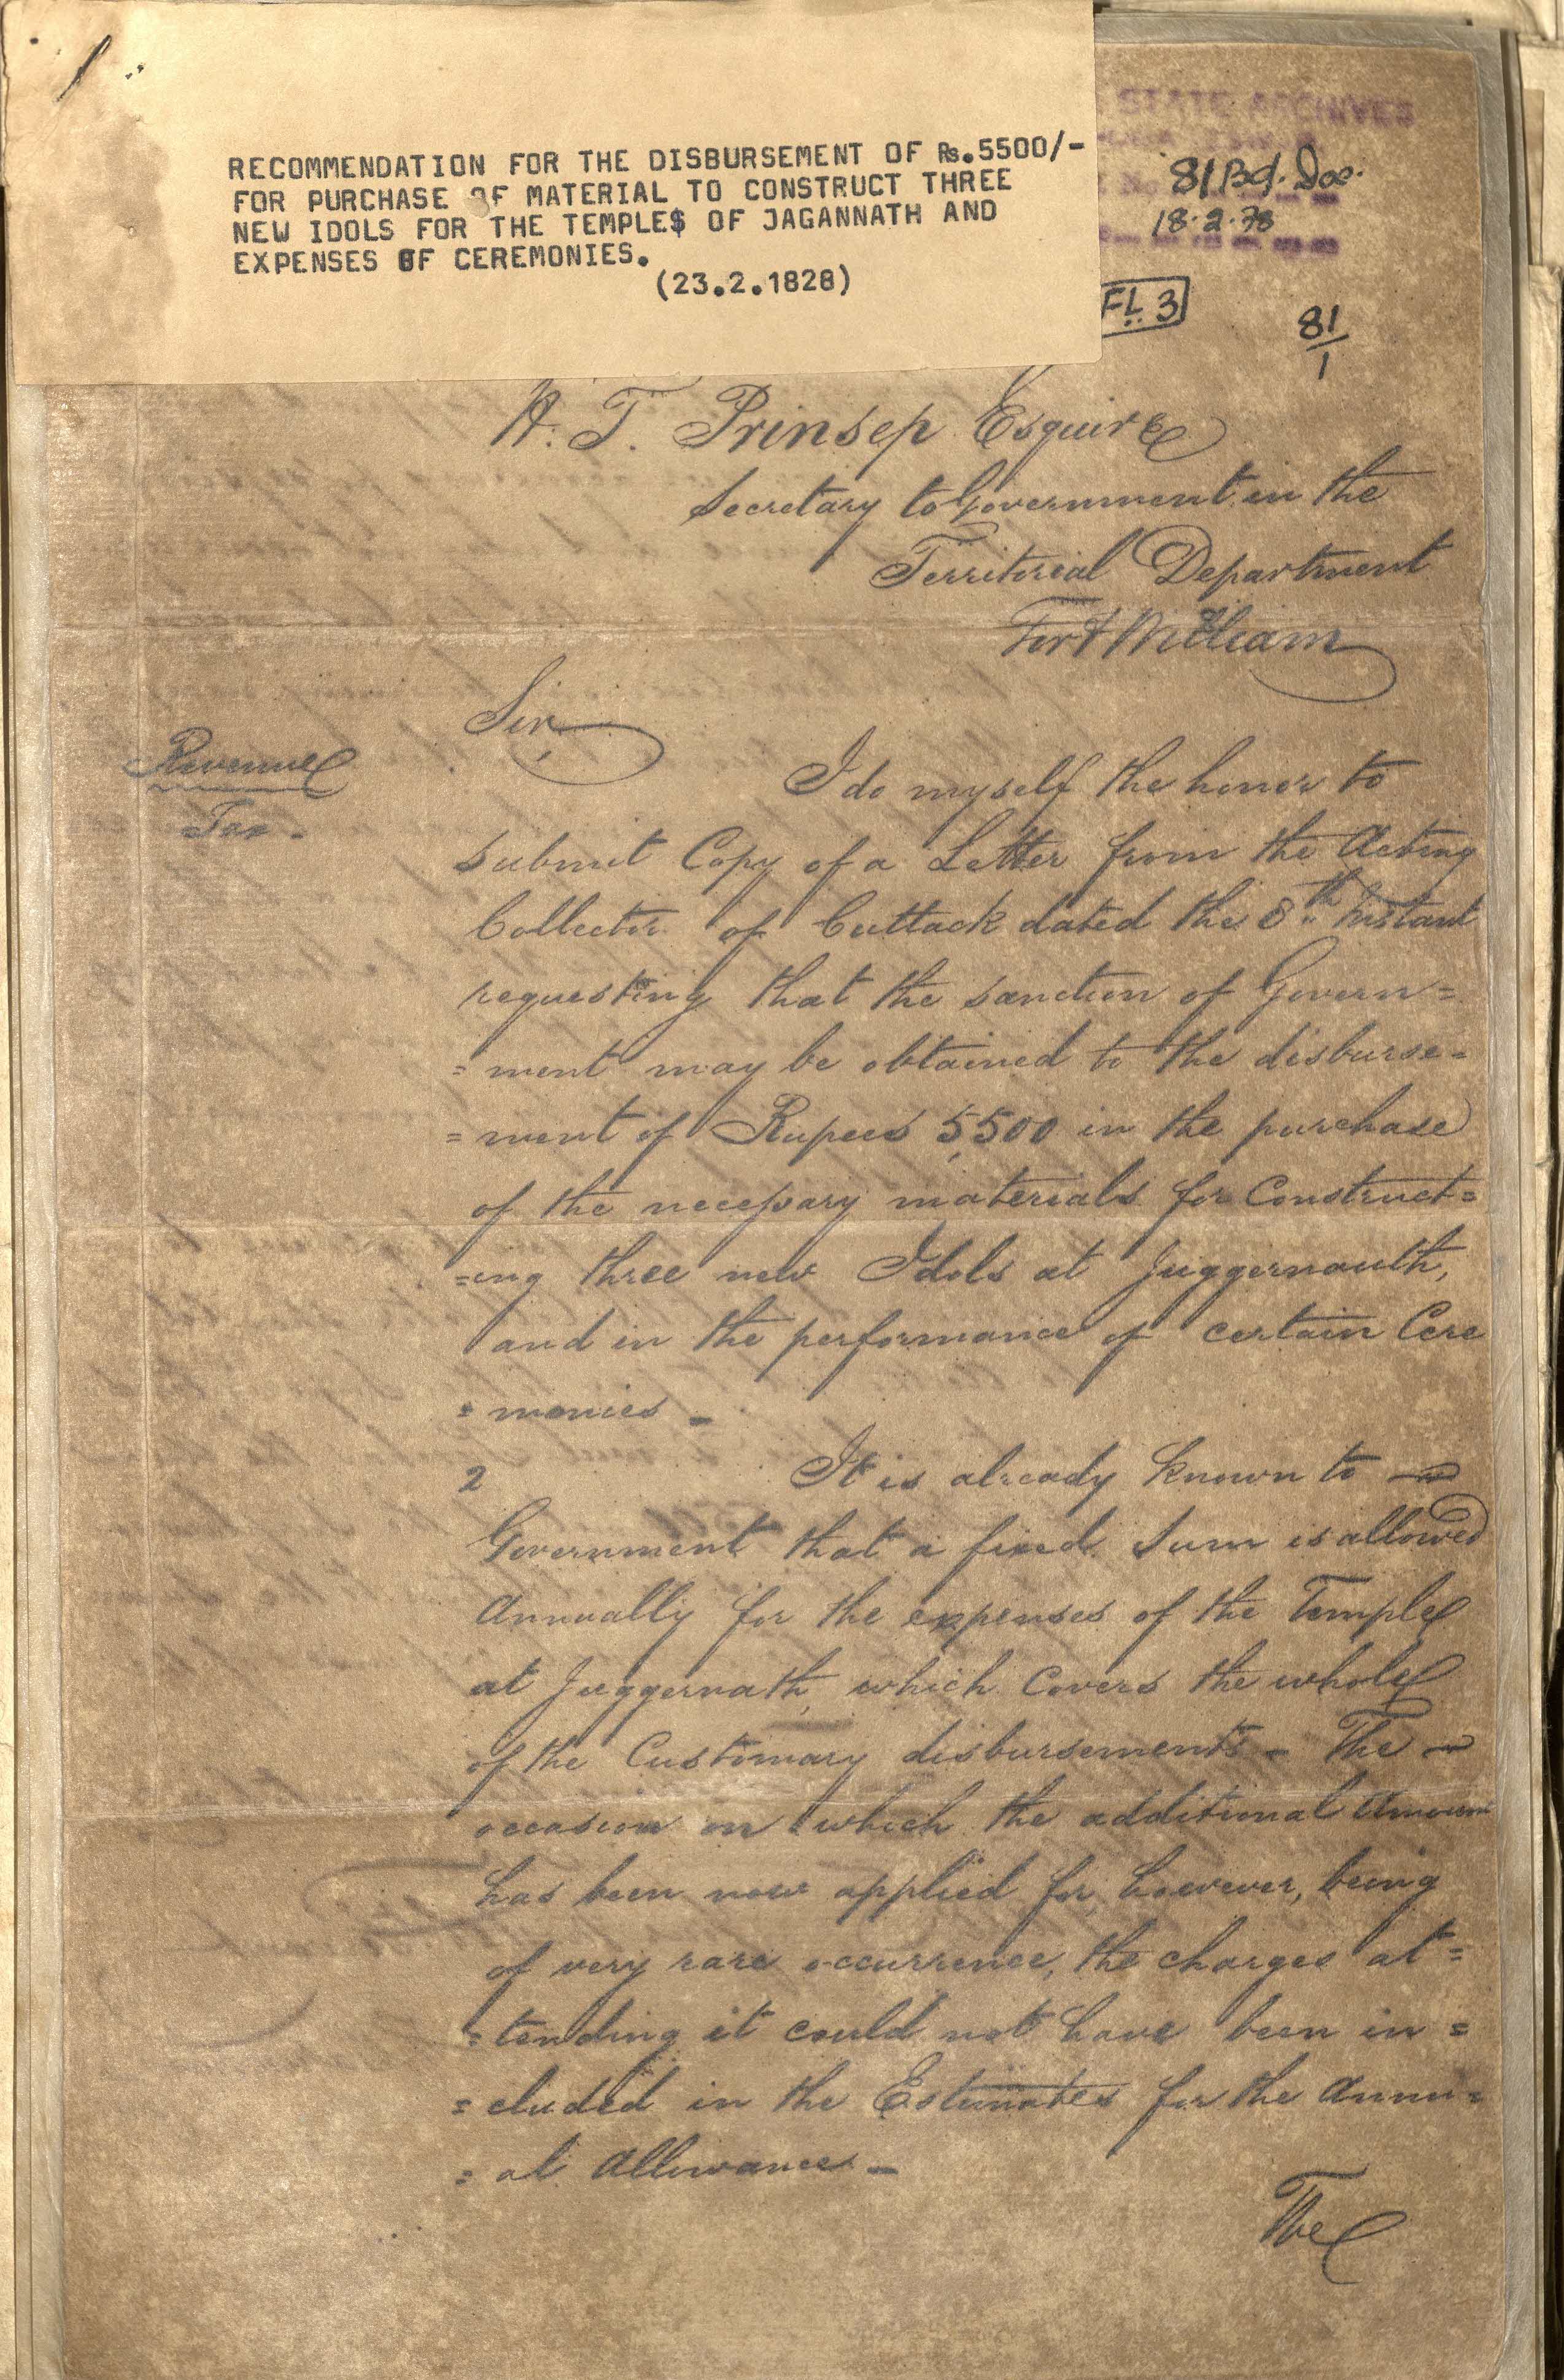 RECOMMENDATION FOR THE DISBURSEMENT OF Rs.5500/-
FOR PURCHASE OF MATERIAL TO CONSTRUCT THREE
NEW IDOLS FOR THE TEMPLE$ OF JAGANNATH AND
EXPENSES OF CEREMONIES.
(23.2.1828)
STATE ARCHIVES
81 Bd. Doc.
18.2.78
FL. 3
81/1
H. T. Prinsep Esquire
Secretary to Government in the
Territorial Department
Fort William
Sir,
Revenue
I do myself the honor to
submit Copy of a Letter from the Acting
Collector of Cuttack dated the 8th Instant
requesting that the sanction of Govern=
=ment may be obtained to the disburse=
=ment of Rupees 5,500 in the purchase
of the necessary materials for Construct=
=ing three new Idols at Juggernauth,
and in the performance of certain Cere
=monies _
2 It is already known to
Government that a fixed Sum is allowed
Annually for the expenses of the Temple
at Juggernath, which Covers the whole
of the Customary disbursements - The
occasion on which the additional Amount
has been now applied for, however, being
of very rare occurrence, the charges at=
=tending it could not have been in=
=cluded in the Estimates for the Annu=
=al Allowance _
The